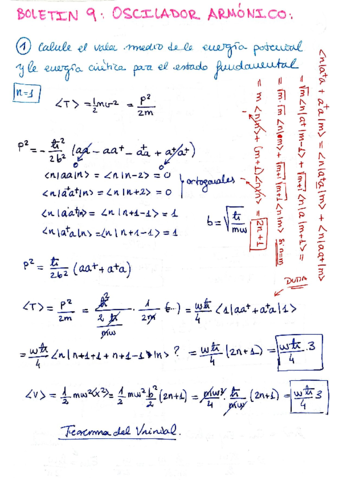 BOLETIN 9: OSCILADOR ARMÓNICO:
① Calcule el valor medio de la energía potencial
y la energía cinética para el estado fundamental
n=1
<T> = 1/2 mv² = p²/2m
p² = -ħ²/2b² (aa - aa⁺ - a⁺a + a⁺a⁺)
<n|aa|n> = <n|n-2> = 0
<n|a⁺a⁺|n> = <n|n+2> = 0
ortogonales
<n|aa⁺|n> = <n|n+1-1> = 1
<n|a⁺a|n> = <n|n+1-1> = 1
b = √ħ/mω
p² = ħ²/2b² (aa⁺ + a⁺a)
DUDA
<T> = p²/2m = ħ²/2 ħ/mω · 1/2m (...) = ωħ/4 <1|aa⁺ + a⁺a|1>
= ωħ/4 <n|n+1+1 + n+1-1|n> ? = ωħ/4 (2n+1) = ωħ/4 · 3
<V> = 1/2 mω²<x²> = 1/2 mω² b²/2 (2n+1) = mω²/4 ħ/mω (2n+1) = ωħ/4 3
Teorema del Virial.
<n|a⁺a + a⁺a|m> = <n|a⁺a|m> + <n|aa⁺|m>
= √m <n|a⁺|m-1> + √m+1 <n|a|m+1> =
= √m √m <n|m> + √m+1 √m+1 <n|m> si n=m
= n <n|n> + (n+1)<n|n> = 2n+1